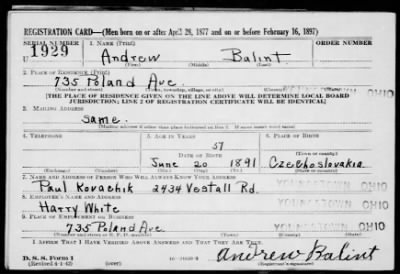 REGISTRATION CARD—(Men born on or after April 28, 1877 and on or before February 16, 1897)
SERIAL NUMBER 1. NAME (Print) ORDER NUMBER
U 1929 Andrew Balint
(First) (Middle) (Last)
2. PLACE OF RESIDENCE (Print)
735 Poland Ave. YOUNGSTOWN OHIO
(Number and street) (Town, township, village, or city) (County) (State)
[THE PLACE OF RESIDENCE GIVEN ON THE LINE ABOVE WILL DETERMINE LOCAL BOARD
JURISDICTION; LINE 2 OF REGISTRATION CERTIFICATE WILL BE IDENTICAL]
3. MAILING ADDRESS
Same.
[Mailing address if other than place indicated on line 2. If same insert word same]
4. TELEPHONE 5. AGE IN YEARS 6. PLACE OF BIRTH
51
DATE OF BIRTH
June 20 1891 Czechoslovakia
7. NAME AND ADDRESS OF PERSON WHO WILL ALWAYS KNOW YOUR ADDRESS
Paul Kovachik 2434 Vestall Rd. YOUNGSTOWN OHIO
8. EMPLOYER'S NAME AND ADDRESS
Harry White
9. PLACE OF EMPLOYMENT OR BUSINESS
735 Poland Ave. YOUNGSTOWN OHIO
(Number and street or R. F. D. number) (Town) (County) (State)
I AFFIRM THAT I HAVE VERIFIED ABOVE ANSWERS AND THAT THEY ARE TRUE.
D. S. S. Form 1
(Revised 4-1-42) Andrew Balint